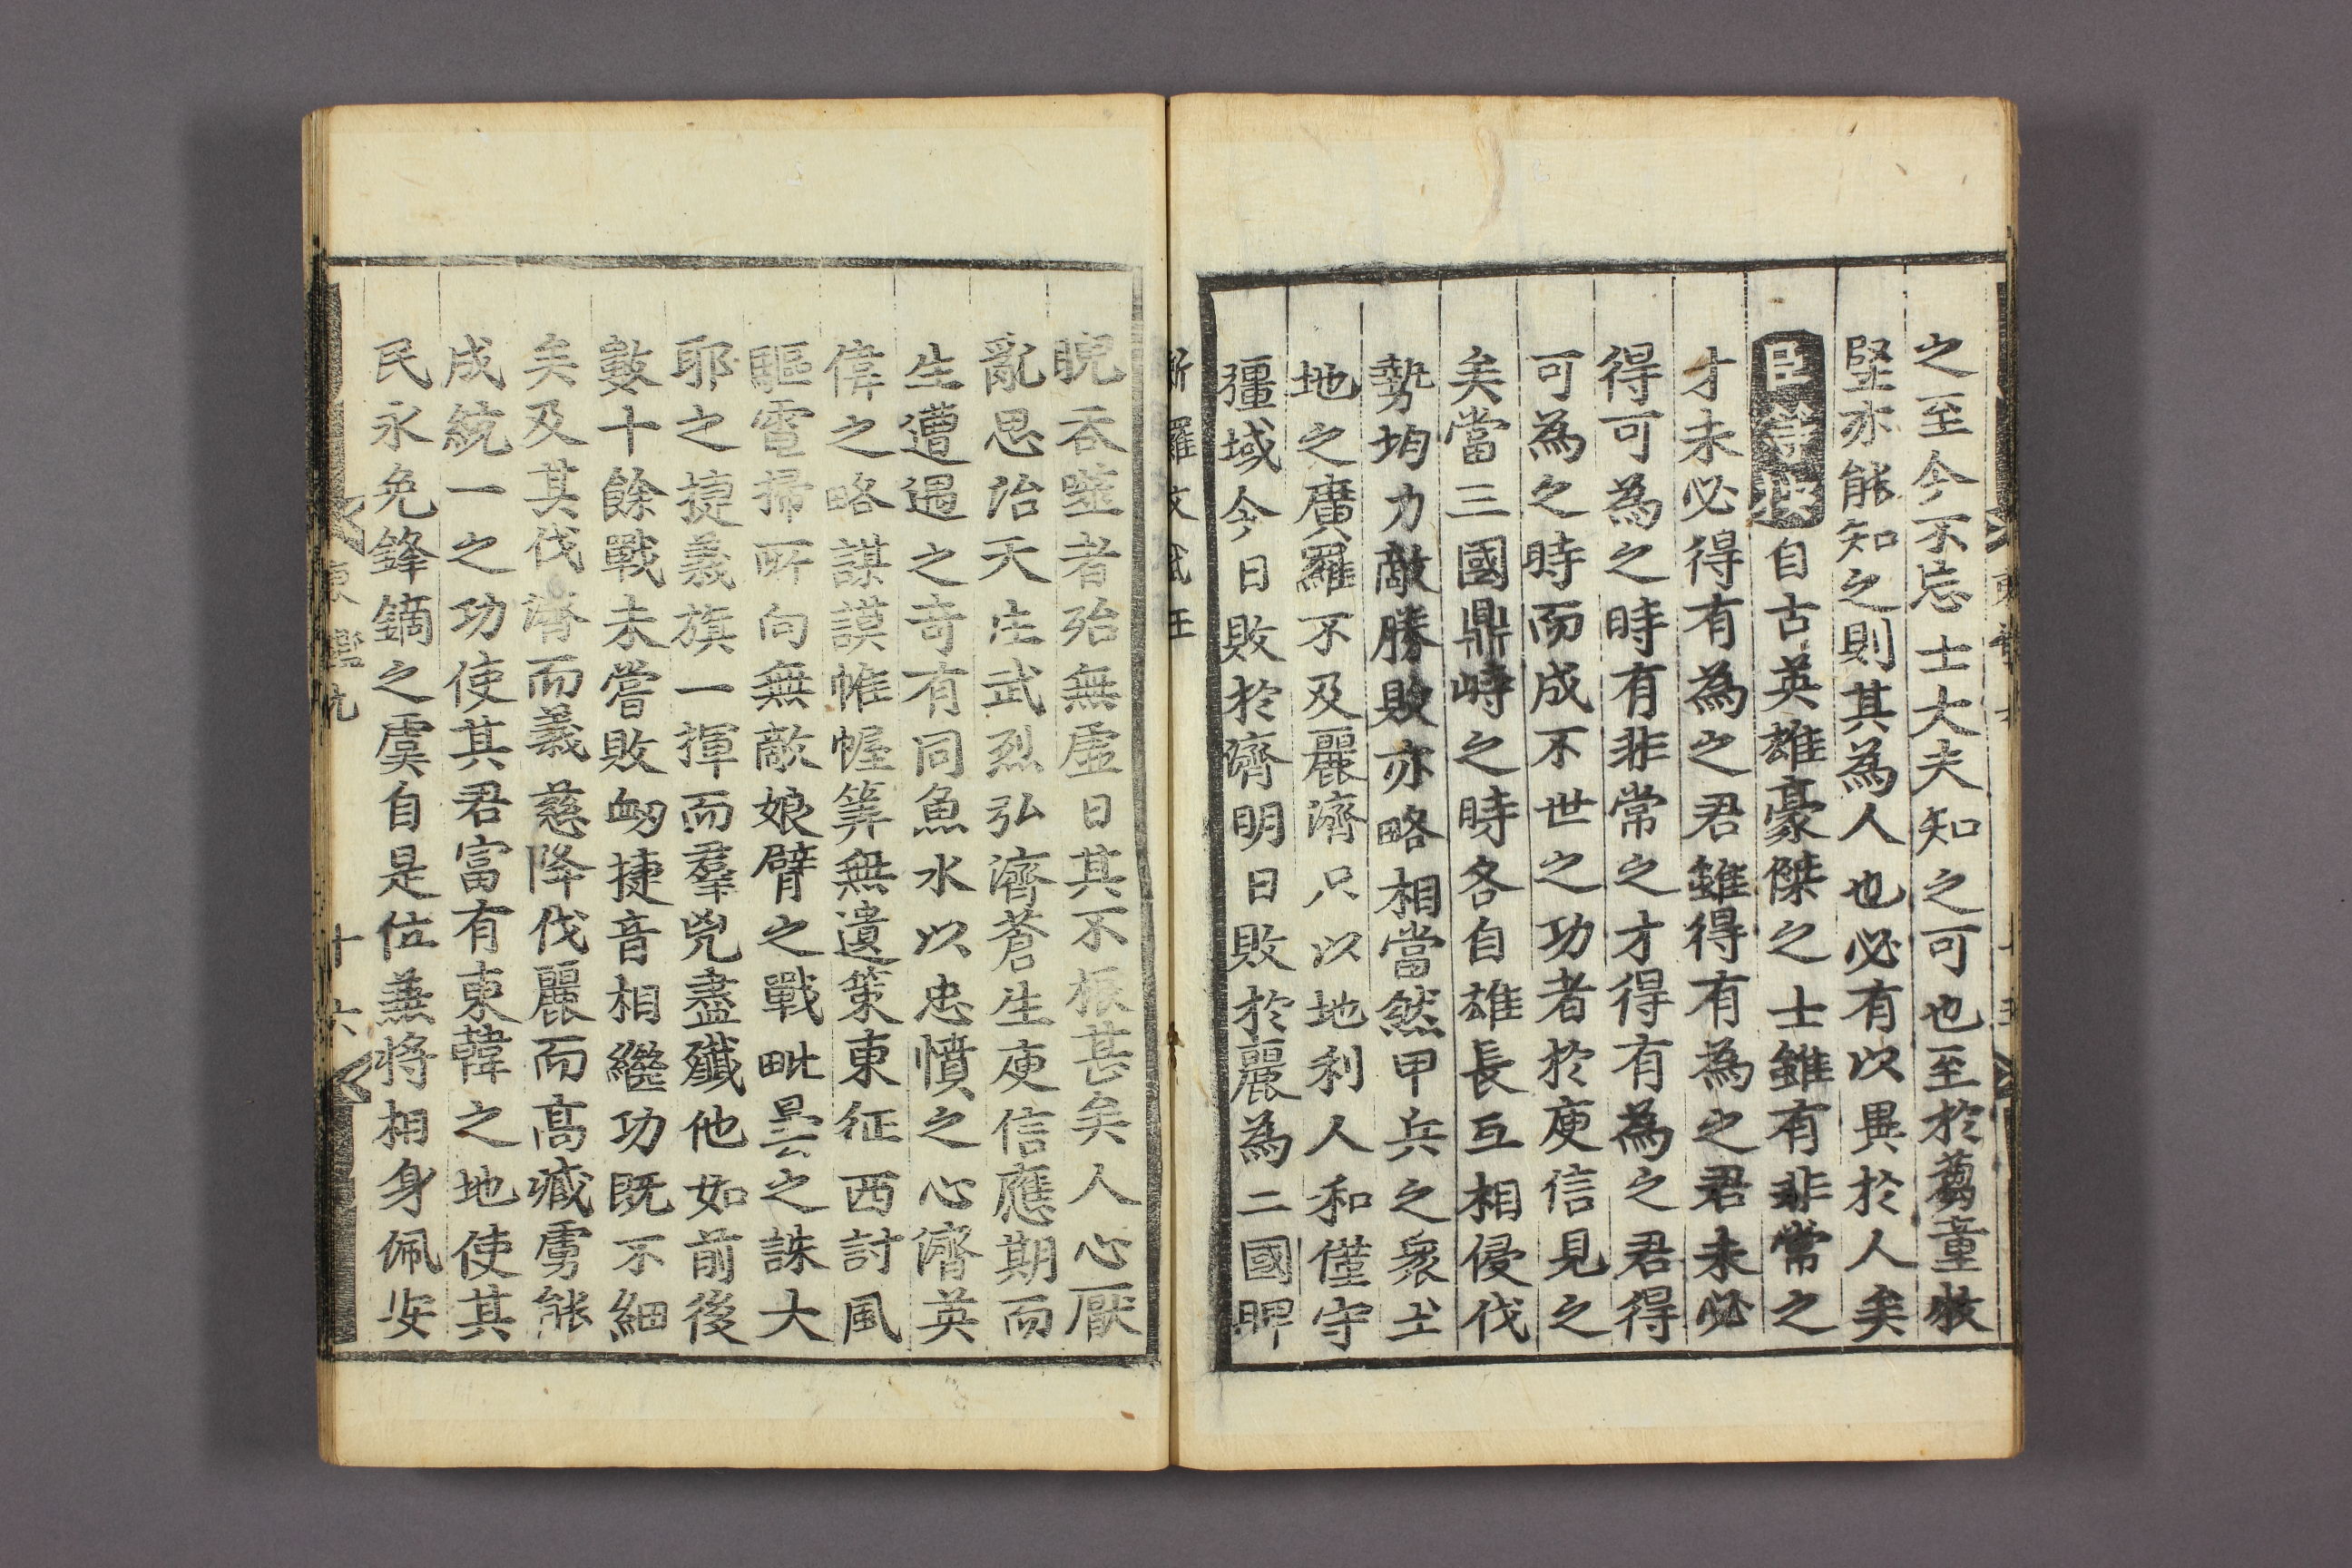 之至今不忘士大夫知之可也至於蒭童牧
竪亦能知之則其為人也必有以異於人矣
臣等按自古英雄豪傑之士雖有非常之
才未必得有為之君雖得有為之君未必
得可為之時有非常之才得有為之君得
可為之時而成不世之功者於庾信見之
矣當三國鼎峙之時各自雄長互相侵伐
勢均力敵勝敗亦略相當然甲兵之衆土
地之廣羅不及麗濟只以地利人和僅守
彊域今日敗於濟明日敗於麗為二國睥
新羅文武王
睨呑噬者殆無虛日其不振甚矣人心厭
亂思治天生武烈弘濟蒼生庾信應期而
生遭遇之奇有同魚水以忠憤之心濟英
偉之略謀謨帷幄筭無遺策東征西討風
驅電掃所向無敵娘臂之戰毗曇之誅大
耶之捷義旗一揮而羣兇盡殲他如前後
數十餘戰未嘗敗衂捷音相繼功既不細
矣及其伐濟而義慈降伐麗而高臧虜能
成統一之功使其君富有東韓之地使其
民永免鋒鏑之虞自是位兼將相身佩安
東鑑九
十六